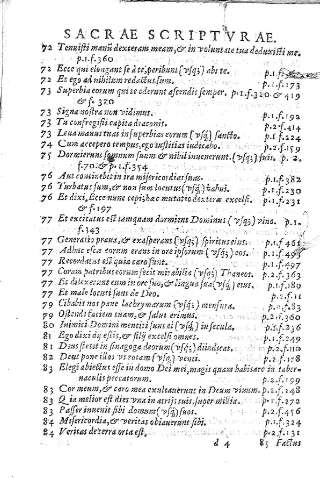 SACRAE SCRIPTVRAE.
72 Tenuisti manū dexteram meam, & in voluntate tua deduxisti me.
p.1.f.360
72 Ecce qui elongant se à te, peribunt (vsq;) abs te. p.1.f.
72 Et ego ad nihilum redactus sum. p.1.f.173
73 Superbia eorum qui te oderunt ascendit semper. p.1.f.320 & 419
& f. 320
73 Signa nostra non vidimus. p.1.f.192
73 Tu confregisti capita draconis. p.2.f.414
73 Leua manus tuas in superbias eorum (vsq;) sancto. p.1.f.224
74 Cum accepero tempus, ego iustitias iudicabo. p.2.f.159
75 Dormierunt somnum suum & nihil inuenerunt (vsq;) suis. p.2.
f.70. & p.1.f.354
76 Aut continebit in ira misericordias suas. p.1.f.382
76 Turbatus sum, & non sum locutus (vsq;) habui. p.1.f.230
76 Et dixi, Ecce nunc cepi, hæc mutatio dexteræ excelsi. p.1.f.231
& f.197
77 Et excitatus est tamquam dormiens Dominus (vsq;) vino. p.1.
f.143
77 Generatio praua, & exasperans (vsq;) spiritus eius. p.1.f.461
77 Adhuc escæ eorum erant in ore ipsorum (vsq;) eos. p.1.f.493
77 Recordatus est quia caro sunt. p.1.f.497
77 Coram patribus eorum fecit mirabilia (vsq;) Taneos. p.2.f.363
77 Et dilexerunt eum in ore suo, & lingua sua (vsq;) eius. p.1.f.180
77 Et male locuti sunt de Deo. p.2.f.11
79 Cibabis nos pane lachrymarum (vsq;) mensura. p.1.f.83
79 Ostende faciem tuam, & salui erimus. p.2.f.360
80 Inimici Domini mentiti sunt ei (vsq;) in sæcula. p.1.f.236
81 Ego dixi dij estis, & filij excelsi omnes. p.1.f.249
81 Deus stetit in sinagoga deorum (vsq;) diiudicat. p.2.f.110
82 Deus pone illos vt rotam (vsq;) venti. p.1.f.178
83 Elegi abiectus esse in domo Dei mei, magis quam habitare in taber-
naculis peccatorum. p.2.f.199
83 Cor meum, & caro mea exultauerunt in Deum viuum. p.2.f.248
83 Quia melior est dies vna in atrijs tuis, super millia. p.1.f.272
83 Passer inuenit sibi domum (vsq;) suos. p.2.f.456
84 Misericordia, & veritas obiauerunt sibi. p.1.f.324
84 Veritas de terra orta est. p.2.f.131
d 4 85 Factus